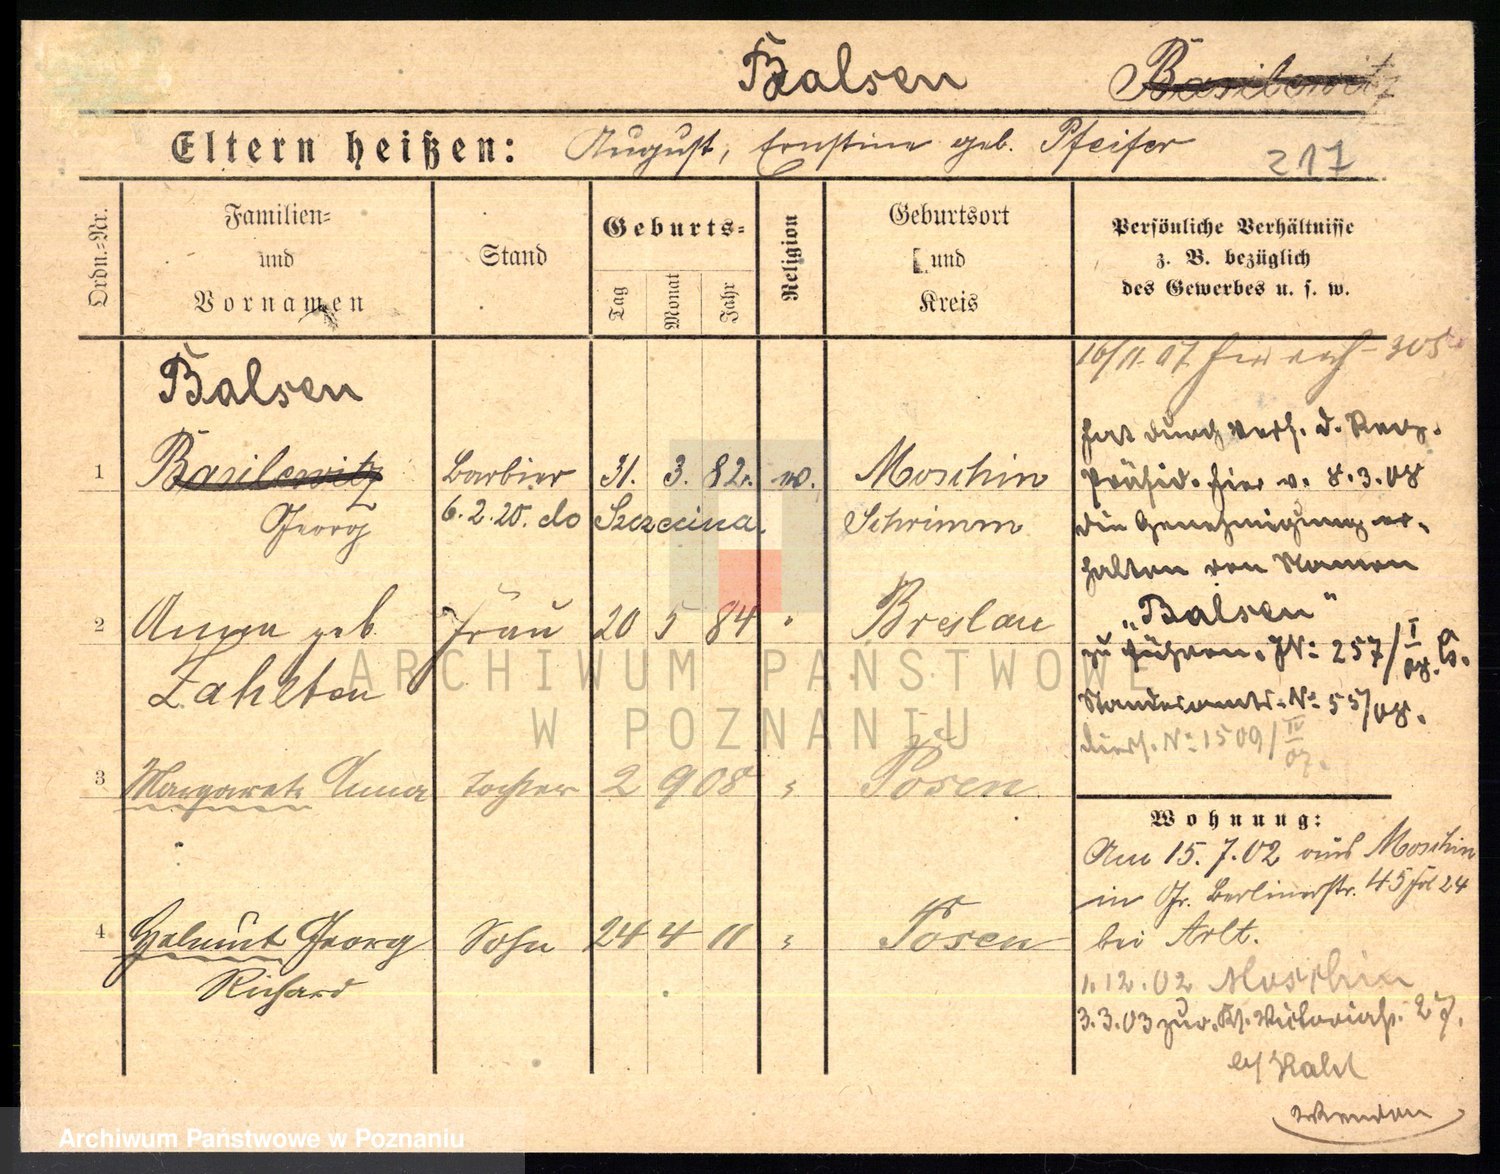 Balsen Basilewitz
Eltern heißen: August, Ernstine geb. Pfeifer 217
Ordn.=Nr.
Familien=
und
Vornamen
Stand
Geburts=
Tag
Monat
Jahr
Religion
Geburtsort
und
Kreis
Persönliche Verhältnisse
z. B. bezüglich
des Gewerbes u. s. w.
Balsen
1 Basilewitz Barbier 31. 3. 82. Moschin
Georg 6.2.20. do Szczecina. Schrimm
2 Anna geb Frau 20 5 84 " Breslau
Zahlten
3 Margarete Anna Tochter 2 9 08 " Posen
4 Helmut Georg Sohn 24 4 11 " Posen
Richard
16/11.07
hat durch Verf. d. Reg.
Präsid. hier v. 8.3.08
die Genehmigung er-
halten den Namen
„Balsen"
zu führen. JNo 257/I 08.
Standesamts-No 55/08.
No 1509/IV 07.
Wohnung:
Am 15.7.02 aus Moschin
in Gr. Berlinerstr. 45 24
bei Arlt.
1.12.02 Moschin
3.3.03 zur. Victoriastr. 27.
ARCHIWUM PAŃSTWOWE
W POZNANIU
Archiwum Państwowe w Poznaniu